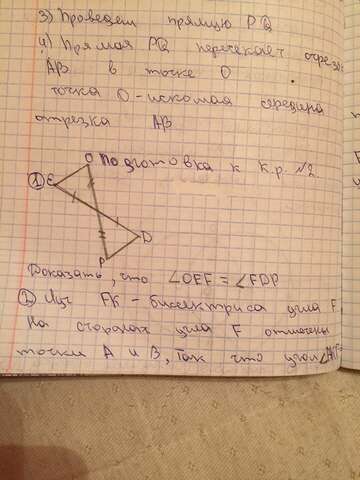 3) Проведем прямую PQ
4) Прямая PQ пересекает отрезок
AB в точке O
точка O - искомая середина
отрезка AB
Подготовка к к.р. №2
1) E O D P
Доказать, что ∠OEF = ∠FDP
2) Луч FK - биссектриса угла F.
На сторонах угла F отмечены
точки A и B, так что угол